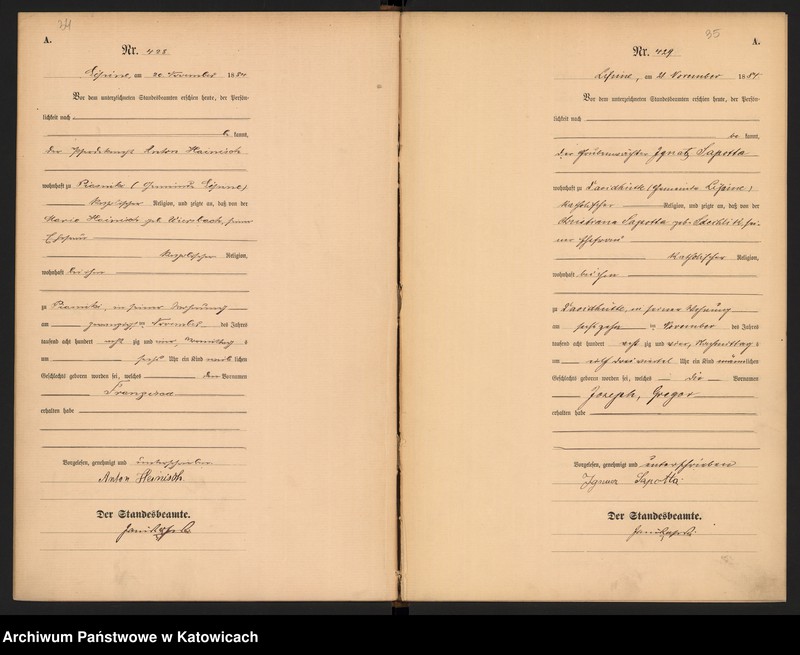 34
A.
Nr. 428
Lipine, am 20 November 1884.
Vor dem unterzeichneten Standesbeamten erschien heute, der Persön-
lichkeit nach
be kannt,
der Anton Hainisch
wohnhaft zu Piasniki (Gemeinde Lipine)
katholischer Religion, und zeigte an, daß von der
Marie Hainisch geb. seiner
Ehefrau
katholischer Religion,
wohnhaft bei ihm
zu Piasniki, in seiner Wohnung
am zwanzigsten November des Jahres
tausend acht hundert acht zig und vier, Vormittag s
um sechs Uhr ein Kind weib lichen
Geschlechts geboren worden sei, welches den Vornamen
Franzisca
erhalten habe
Vorgelesen, genehmigt und unterschrieben
Anton Heinisch
Der Standesbeamte.
35
A.
Nr. 429
Lipine, am 21 November 1884.
Vor dem unterzeichneten Standesbeamten erschien heute, der Persön-
lichkeit nach
be kannt,
der Ignatz Sapotta
wohnhaft zu Davidhütte (Gemeinde Lipine)
katholischer Religion, und zeigte an, daß von der
Sapotta geb. sei-
ner Ehefrau
katholischer Religion,
wohnhaft bei ihm
zu Davidhütte, in seiner Wohnung
am sechszehn ten November des Jahres
tausend acht hundert acht zig und vier, Nachmittag s
um Uhr ein Kind männlichen
Geschlechts geboren worden sei, welches die Vornamen
Joseph, Gregor
erhalten habe
Vorgelesen, genehmigt und unterschrieben
Ignatz Sapotta
Der Standesbeamte.
Archiwum Państwowe w Katowicach